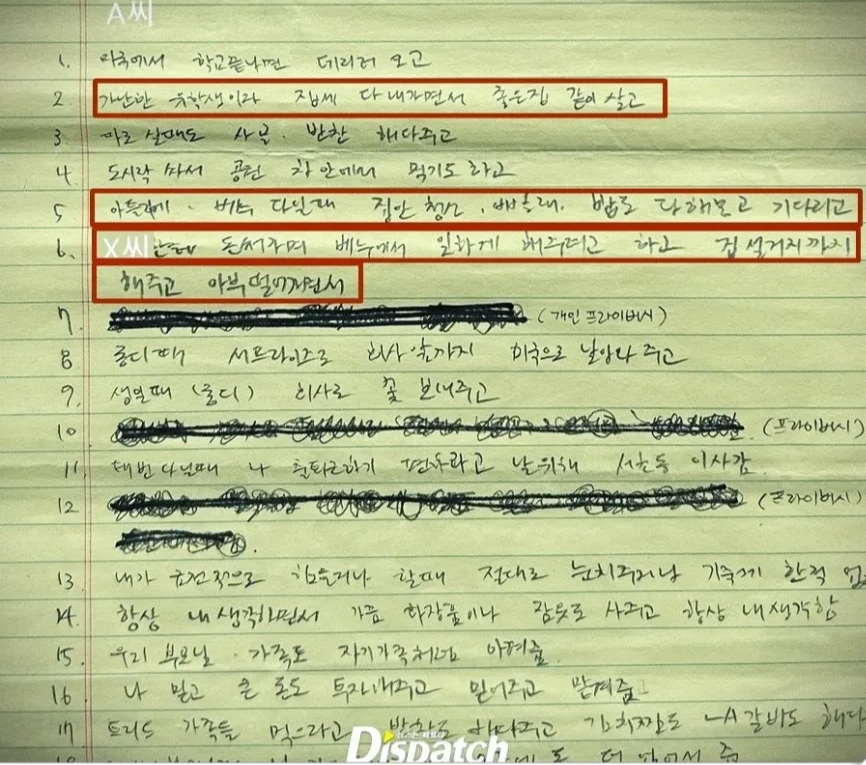 A씨
1. 미국에서 학교끝나면 데리러 오고
2. 가난한 유학생이라 집세 다 내가면서 좋은집 같이 살고
3 따로 살때도 사골. 반찬 해다주고
4. 도시락 싸서 공원 차안에서 먹기도 하고
5 다닐때 집안 청소, 빨래. 밥도 다해놓고 기다리고
6. X씨한테 돈써가며 에서 일하게 해주려고 하고 집 설거지까지
해주고 아부 떨어가면서
7. (개인 프라이버시)
8 롱디때 서프라이즈로 회사 앞까지 미국으로 날아와 주고
9. 생일때 (롱디) 회사로 꽃 보내주고
10 (프라이버시)
11. 다닐때 나 출퇴근하기 편하라고 날위해 서초동 이사감
12 (프라이버시)
13 내가 금전적으로 힘들거나 할때 절대로 눈치주거나 기죽게 한적
14. 항상 내생각하면서 가끔 화장품이나 잠옷도 사주고 항상 내생각함
15. 우리 부모님. 가족도 자기가족처럼 아껴줌
16 나 믿고 큰 돈도 투자해주고 믿어주고 맡겨줌
17 가족들 먹으라고 반찬도 해다주고 김치찜도 LA갈비도 해다
Dispatch